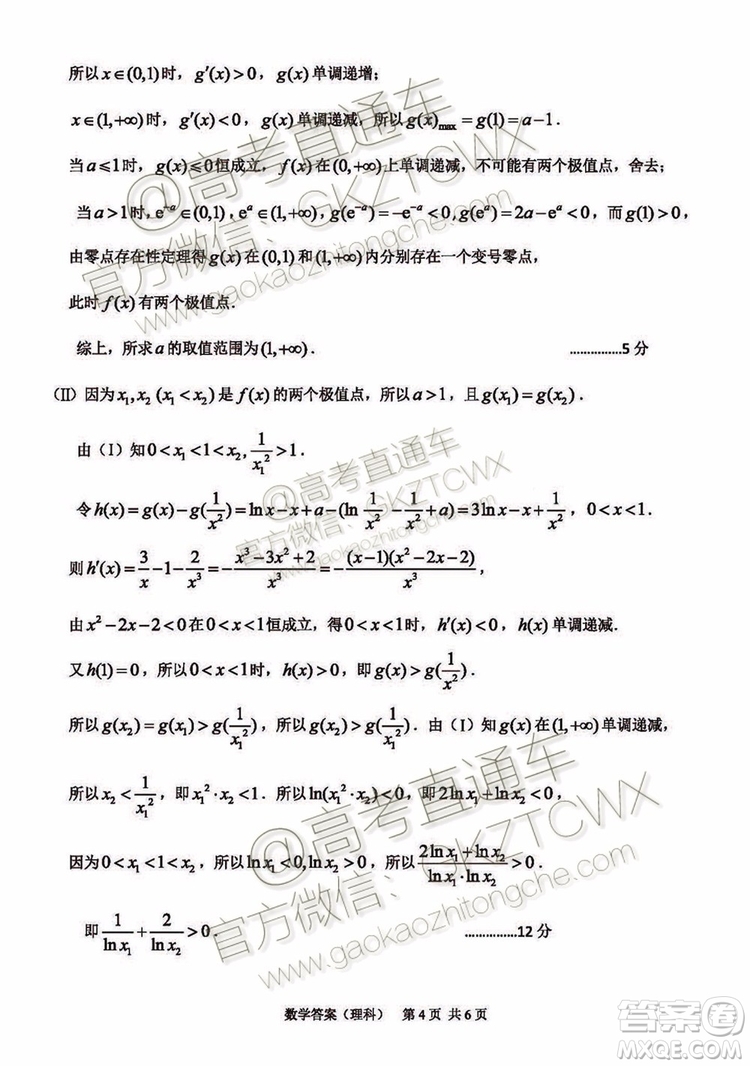 所以x∈(0,1)时，g′(x)>0，g(x)单调递增；
x∈(1,+∞)时，g′(x)<0，g(x)单调递减，所以g(x)max=g(1)=a−1．
当a⩽1时，g(x)⩽0恒成立，f(x)在(0,+∞)上单调递减，不可能有两个极值点，舍去；
当a>1时，e^(−a)∈(0,1)，e^a∈(1,+∞)，g(e^(−a))=−e^(−a)<0，g(e^a)=2a−e^a<0，而g(1)>0，
由零点存在性定理得g(x)在(0,1)和(1,+∞)内分别存在一个变号零点，
此时f(x)有两个极值点．
综上，所求a的取值范围为(1,+∞)． ...............5分
(II) 因为x₁,x₂(x₁<x₂)是f(x)的两个极值点，所以a>1，且g(x₁)=g(x₂)．
由（I）知0<x₁<1<x₂,1/x₁²>1．
令h(x)=g(x)−g(1/x²)=ln x−x+a−(ln 1/x²−1/x²+a)=3ln x−x+1/x²，0<x<1．
则h′(x)=3/x−1−2/x³=−(x³−3x²+2)/x³=−(x−1)(x²−2x−2)/x³，
由x²−2x−2<0在0<x<1恒成立，得0<x<1时，h′(x)<0，h(x)单调递减．
又h(1)=0，所以0<x<1时，h(x)>0，即g(x)>g(1/x²)．
所以g(x₂)=g(x₁)>g(1/x₁²)，所以g(x₂)>g(1/x₁²)．由（I）知g(x)在(1,+∞)单调递减，
所以x₂<1/x₁²，即x₁²·x₂<1．所以ln(x₁²·x₂)<0，即2ln x₁+ln x₂<0，
因为0<x₁<1<x₂，所以ln x₁<0,ln x₂>0，所以(2ln x₁+ln x₂)/(ln x₁·ln x₂)>0．
即1/ln x₁+2/ln x₂>0． ...............12分
数学答案（理科） 第4页 共6页
@高考直通车
官方微信：GKZTCWX
www.gaokaozhitongche.com
@高考直通车
官方微信：GKZTCWX
www.gaokaozhitongche.com
@高考直通车
官方微信：GKZTCWX
www.gaokaozhitongche.com
答案圈
MXQE.COM